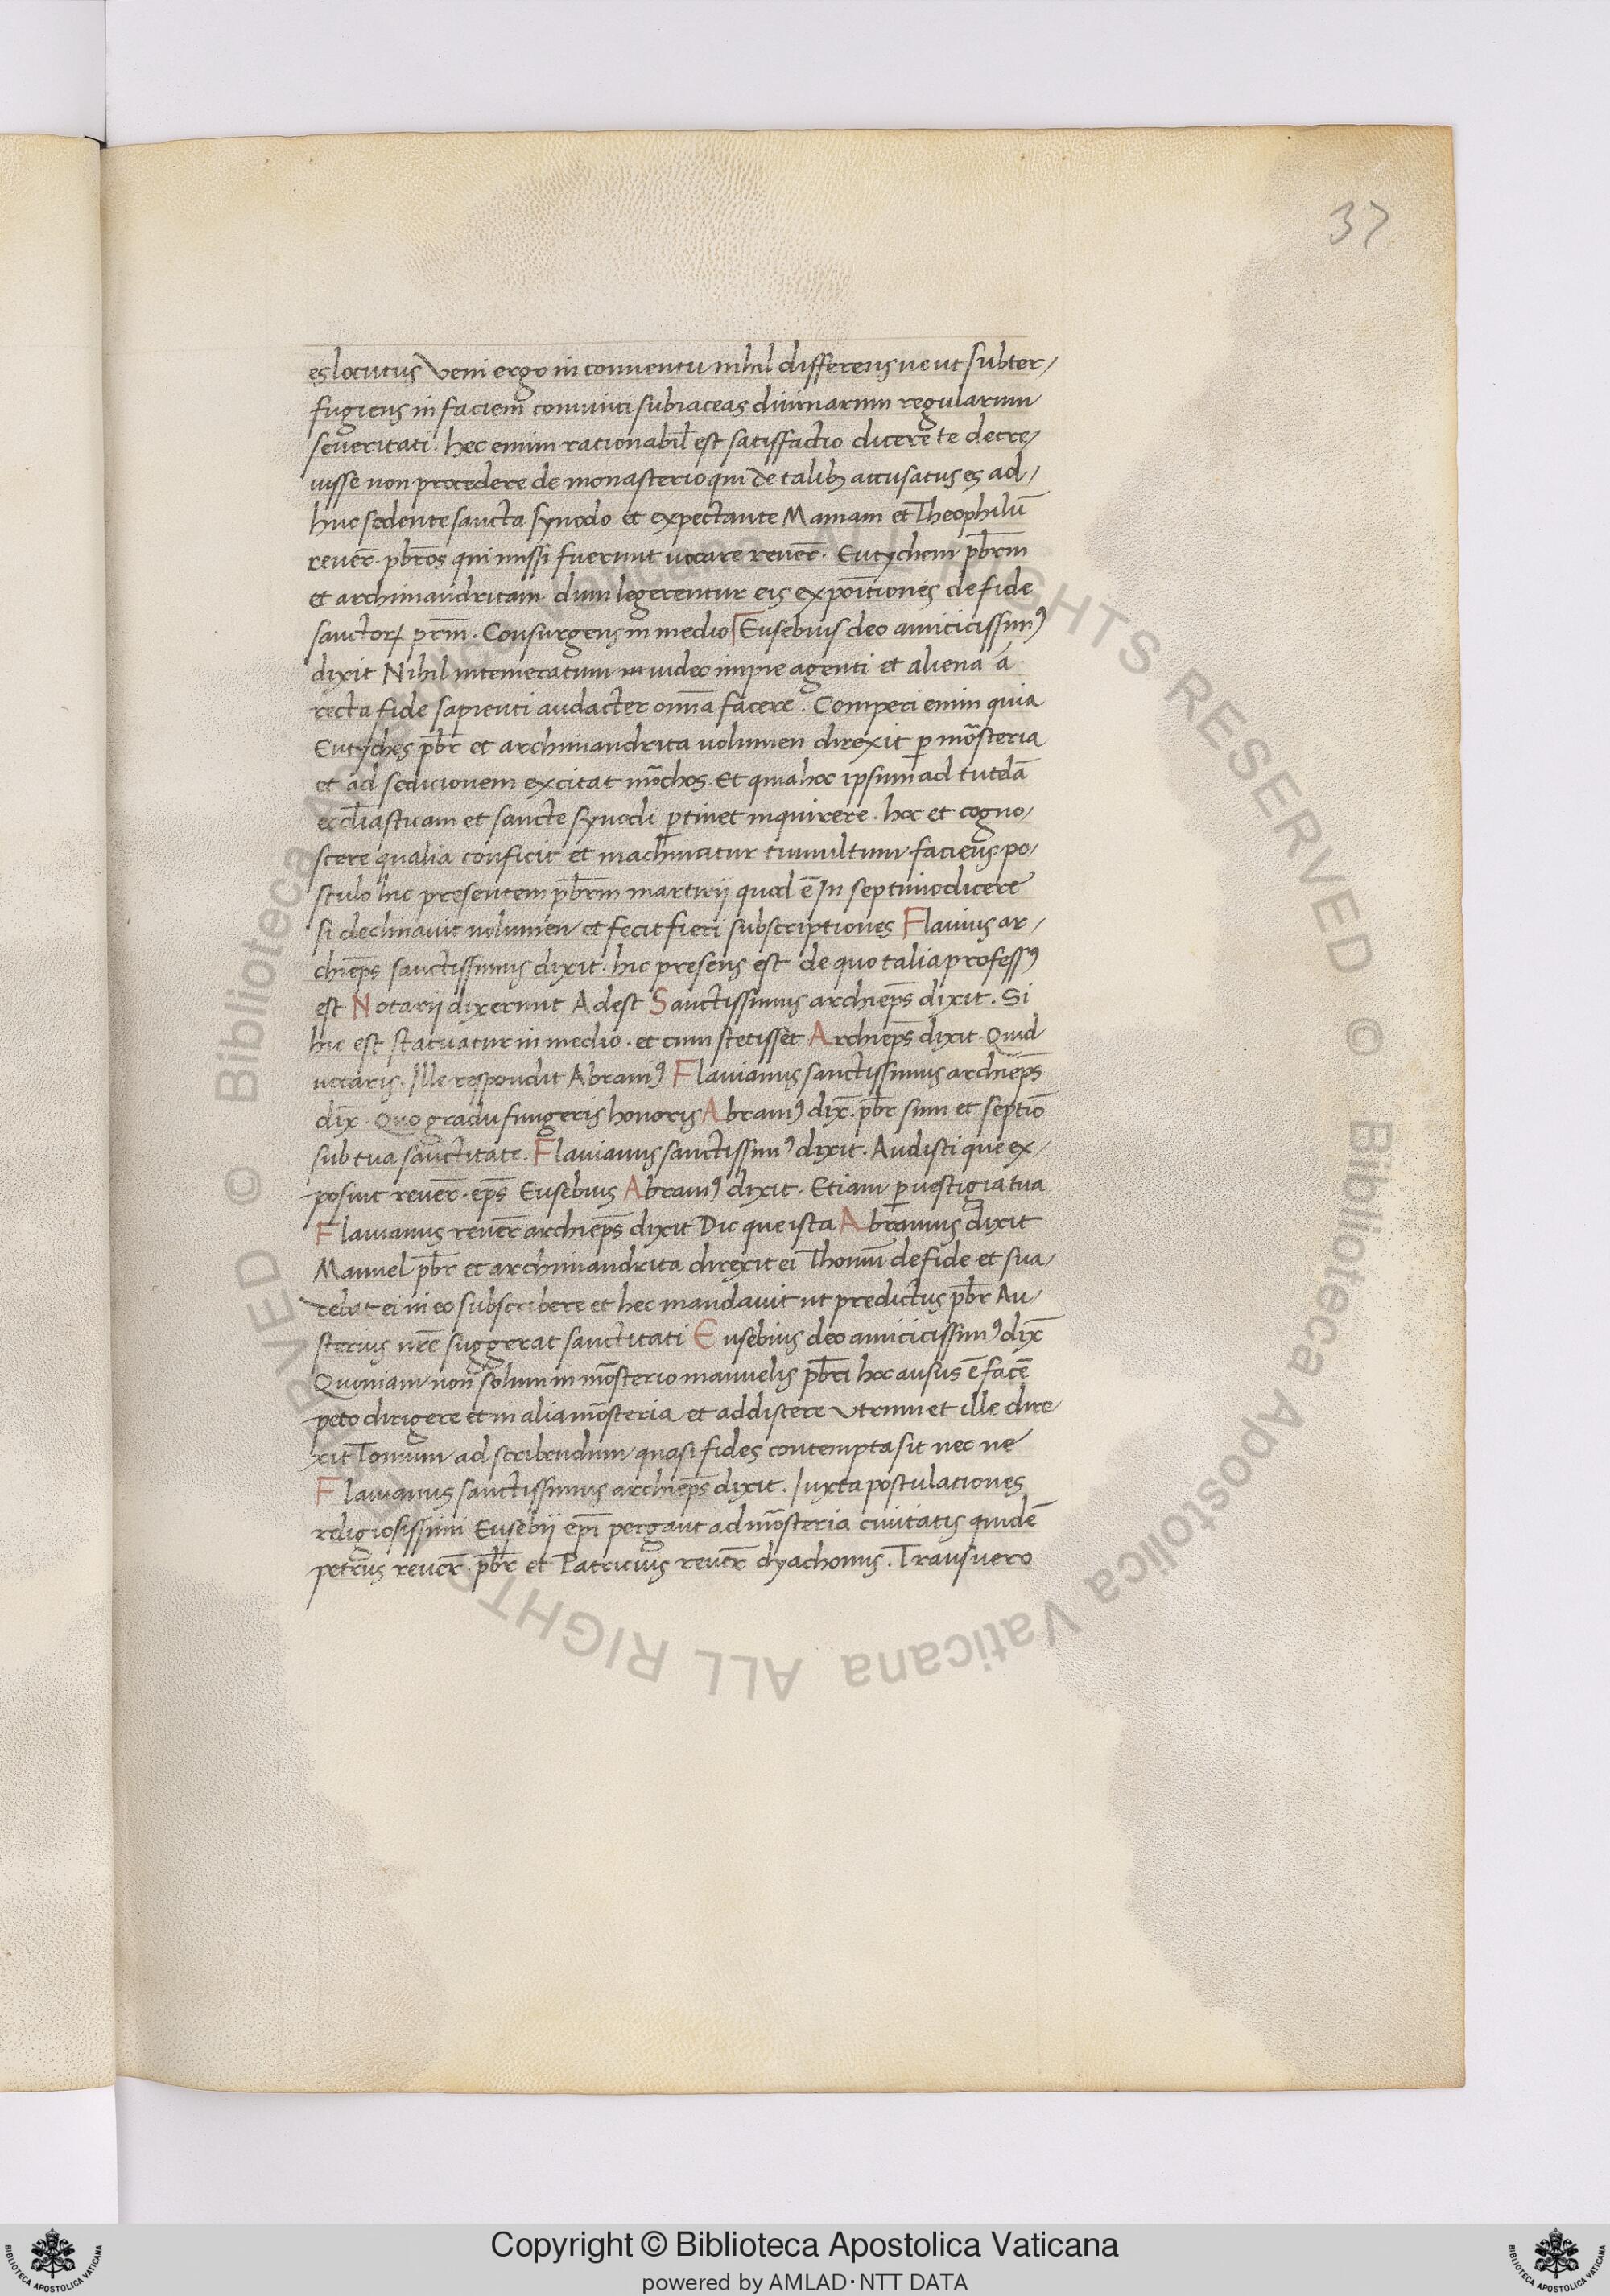 37
es locutus Veni ergo in conuentu nihil differens ue ut subter/
fugiens in faciem conuinci subiaceas diuinarum regularum
seueritati. hec enim rationabil̄ est satisffactio dicere te decre/
uisse non procedere de monasterio qui de talibꝫ accusatus es ad/
huc sedente sancta synodo et expectante Mamam et Theophilū
reuer̄. pb̄ros qui missi fuerunt uocare reuer̄. Eutychem pb̄rm
et archimandritam dum legerentur eis expōitiones de fide
sanctoꝝ pr̄m. Consurgens in medio Eusebius deo amicicissimꝰ
dixit Nihil intemeratum uideo impie agenti et aliena a
recta fide sapienti audacter om̄a facere. Comperi enim quia
Eutyches pb̄r et archimandrita uolumen direxit ꝑ mōsteria
et ad sedicionem excitat mōchos. Et quia hoc ipsum ad tutelā
eccl̄iasticam et sancte synodi ꝑtinet inquirere. hoc et cogno/
scere qualia conficit et machinatur tumultum faciens po/
stulo hic presentem pb̄rm martirij quod ē In septimo dicere
si declinauit uolumen et fecit fieri subscriptiones Flauius ar/
chiep̄s sanctissimus dixit. hic presens est de quo talia professꝰ
est Notarij dixerunt Adest Sanctissimus archiep̄s dixit. Si
hic est statuatur in medio. et cum stetisset Archiep̄s dixit. Quid
uocaris. Ille respondit Abramꝰ Flauianus sanctissimus archiep̄s
dix̄. Quo gradu fungeris honoris Abramꝰ dix̄. pb̄r sum et septiō
sub tua sanctitate. Flauianus sanctissimꝰ dixit. Audisti que ex/
posuit reuer̄. ep̄s Eusebius Abramꝰ dixit. Etiam ꝑ uestigia tua
Flauianus reuer̄ archiep̄s dixit Dic que ista Abramus dixit
Manuel pb̄r et archimandrita direxit ei Thomū de fide et sua/
debat ei in eo subscribere et hec mandauit ut predictus pb̄r Au/
sterius nr̄e suggerat sanctitati Eusebius deo amicicissimꝰ dix̄
Quoniam non solum in mōsterio manuelis pb̄ri hoc ausus ē facē
peto dirigere et in alia mōsteria et addiscere Vtrum et ille dire/
xit Tomum ad scribendum quasi fides contempta sit nec ne
Flauianus sanctissimus archiep̄s dixit. Iuxta postulationes
religiosissimi Eusebij ep̄i pergant ad mōsteria ciuitatis quidē
petrus reuer̄. pb̄r et Patricius reuer̄ dyachonus. Trans uero
© Biblioteca Apostolica Vaticana ALL RIGHTS RESERVED © Biblioteca Apostolica Vaticana ALL RIGHTS RESERVED
BIBLIOTECA APOSTOLICA VATICANA
Copyright © Biblioteca Apostolica Vaticana
powered by AMLAD·NTT DATA
BIBLIOTECA APOSTOLICA VATICANA